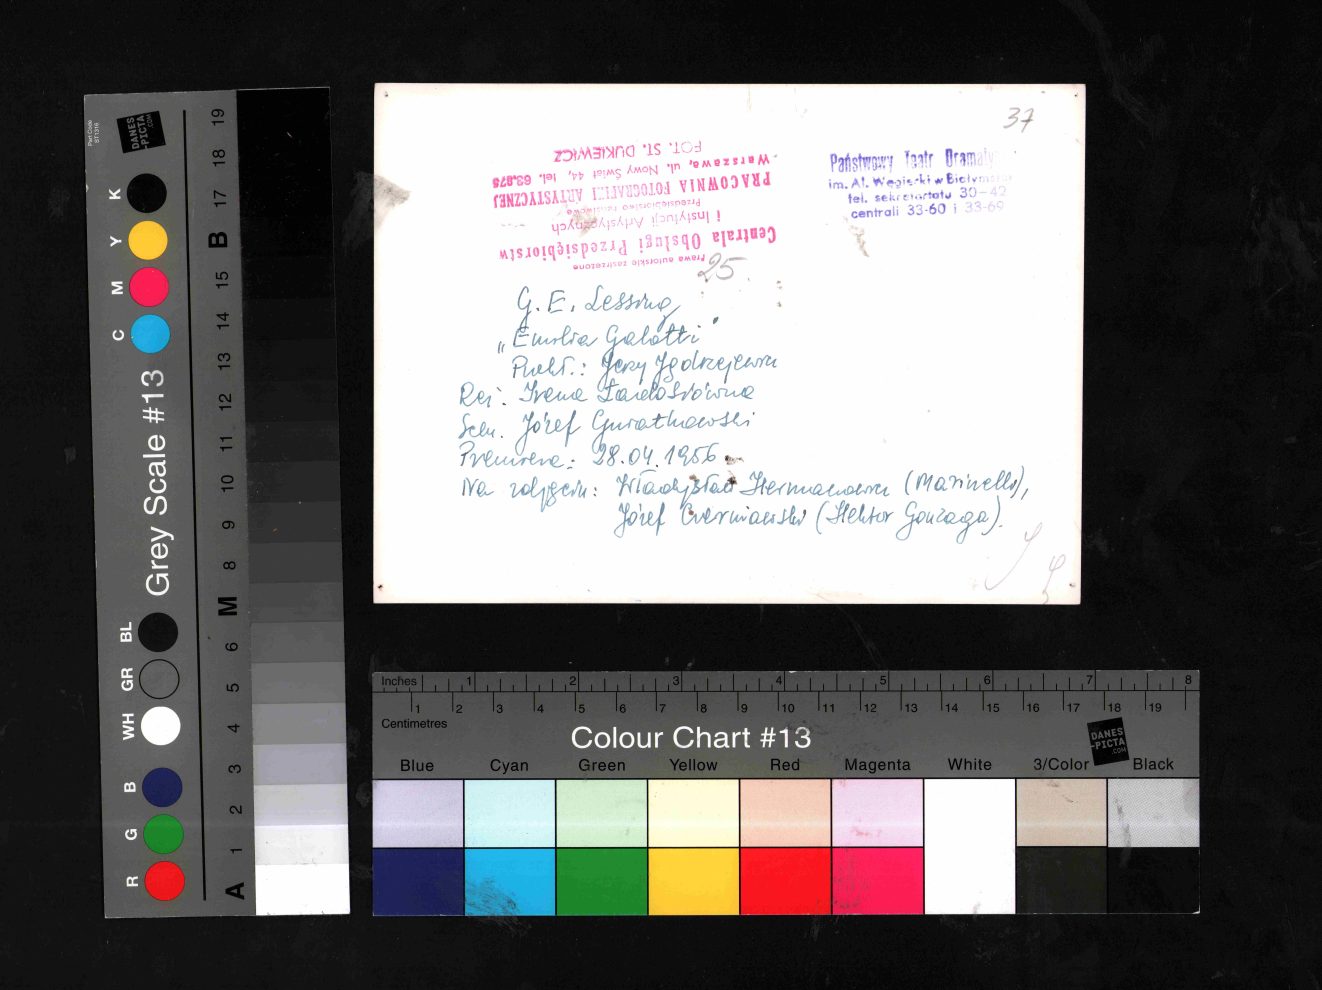 37
Państwowy Teatr Dramaty
im. Al. Węgierki w Białymstoku
tel. sekretariatu 30-42
centrali 33-60 i 33-69
Prawa autorskie zastrzeżone
Centrala Obsługi Przedsiębiorstw
i Instytucji Artystycznych
Przedsiębiorstwo Państwowe
PRACOWNIA FOTOGRAFIKI ARTYSTYCZNEJ
Warszawa, ul. Nowy Świat 44, tel. 63.975
FOT. ST. DUKIEWICZ
25
G. E. Lessing
„Emilia Galotti"
Przekł.: Jerzy Jędrzejewicz
Reż: Irena Ładosiówna
Scen. Józef Gwiatkowski
Premiera: 28.04.1956
Na zdjęciu: Władysław (Marinelli),
Józef Czerniawski (Hektor Gonzaga).
Part Code
ST1316
DANES
-PICTA
.COM
Grey Scale #13
R G B WH GR BL C M Y K
A 1 2 3 4 5 6 M 8 9 10 11 12 13 14 15 B 17 18 19
Inches 1 2 3 4 5 6 7 8
1 2 3 4 5 6 7 8 9 10 11 12 13 14 15 16 17 18 19
Centimetres
Colour Chart #13
DANES
-PICTA
.COM
Blue Cyan Green Yellow Red Magenta White 3/Color Black